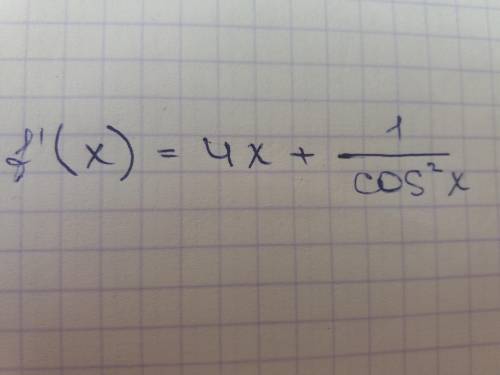 f'(x) = 4x + \frac{1}{\cos^2 x}